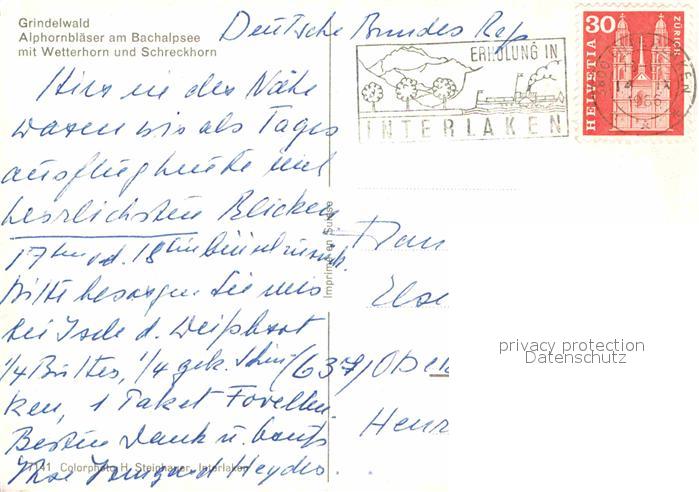 Grindelwald
Alphornbläser am Bachalpsee
mit Wetterhorn und Schreckhorn
Deutsche Bundes Rep
ERHOLUNG IN
INTERLAKEN
30
HELVETIA
ZÜRICH
Hier in der Nähe
waren wir als Tages
ausflug heute mit
herrlichsten Blicken
17ten od. 18ten bin ich zurück.
Bitte besorgen Sie mir
bei Isele d. Weißbrot
1/4 Butter, 1/4 gek. Schin-
ken, 1 Paket Forellen.
Besten Dank u. herzl.
Ihre Irmgard Heyder
Imprimé en Suisse
Frau
Else
(637) Ober
Henr
privacy protection
Datenschutz
Colorphoto H. Steinhauer, Interlaken